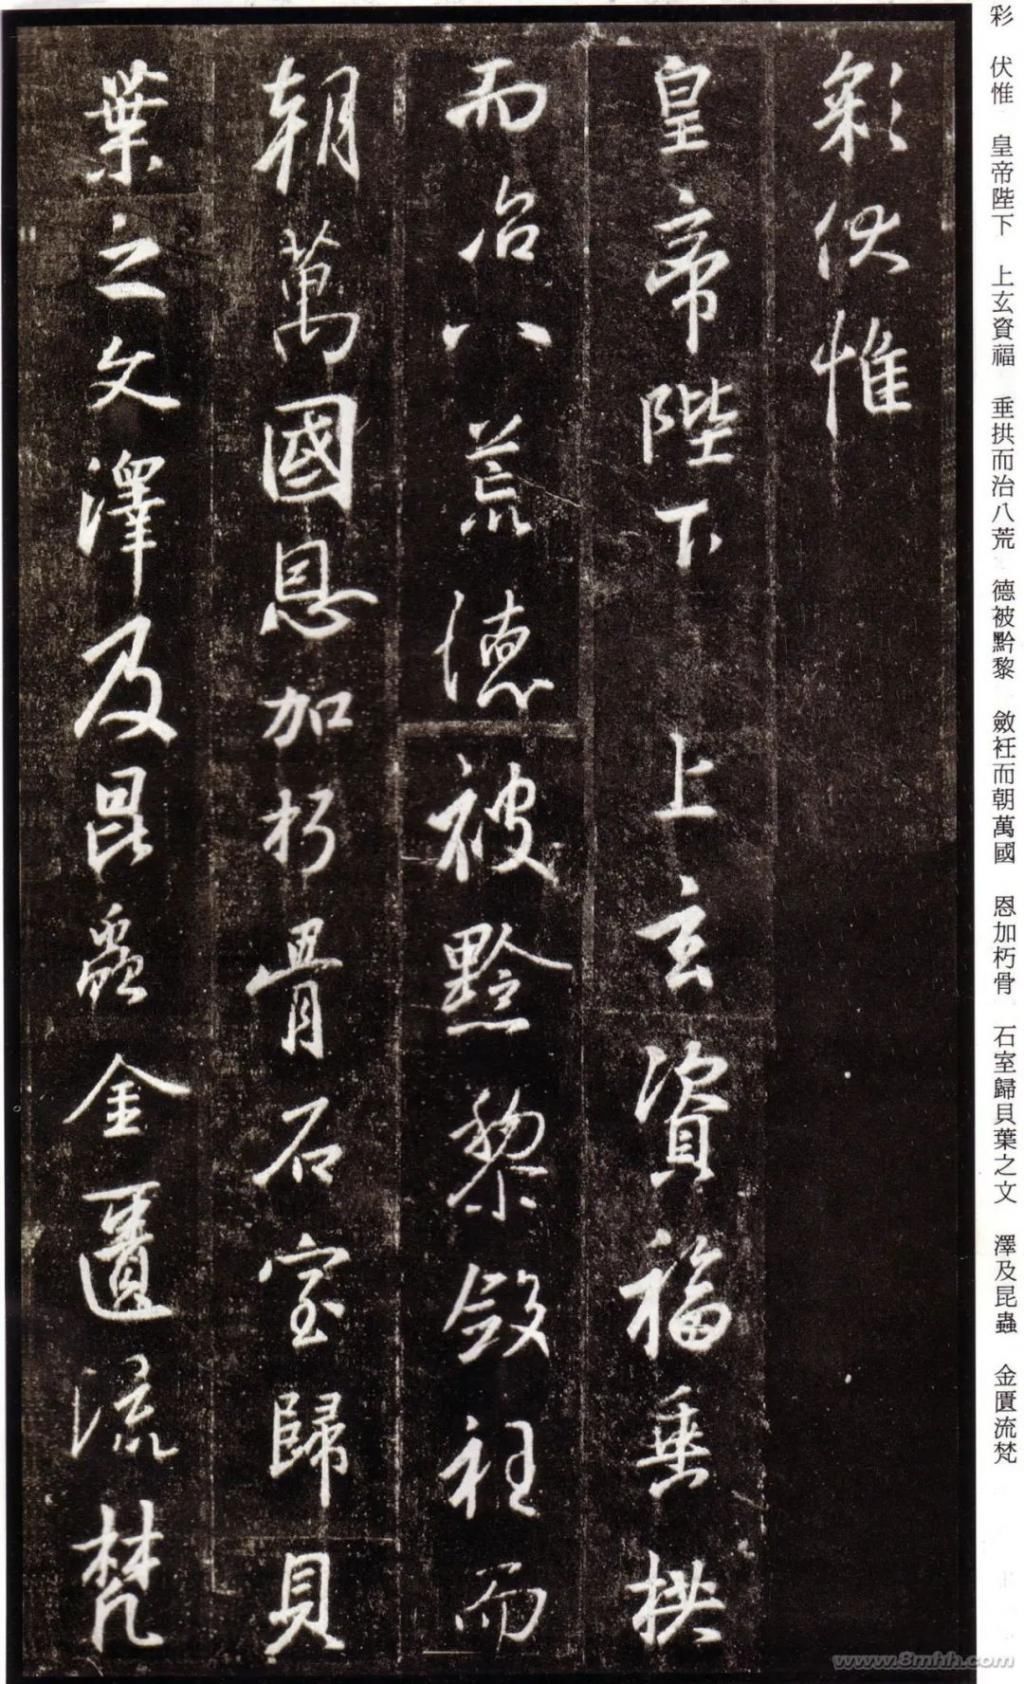 彩 伏惟 皇帝陛下 上玄資福 垂拱而治八荒 德被黔黎 斂衽而朝萬國 恩加朽骨 石室歸貝葉之文 澤及昆蟲 金匱流梵
彩伏惟
皇帝陛下 上玄資福垂拱
而治八荒德被黔黎斂衽而
朝萬國恩加朽骨石室歸貝
葉之文澤及昆蟲金匱流梵
www.8mhh.com